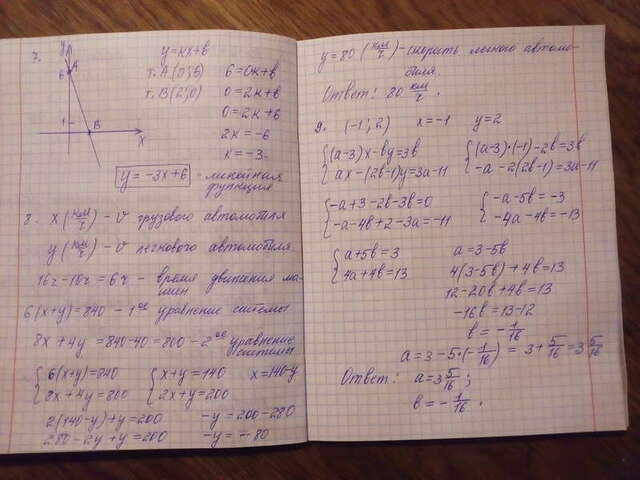 7.
y
6 A
1
B
x
y=кx+b
т.A(0;6) 6=0к+b
т.B(2;0) 0=2к+b
0=2к+6
2к=-6
к=-3
y=-3x+6 - линейная функция
8. x(км/ч) - v грузового автомобиля
y(км/ч) - v легкового автомобиля.
16ч-10ч=6ч - время движения ма-
шин
6(x+y)=840 - 1ое уравнение системы
8x+4y=840-40=800 - 2ое уравнение
системы
{6(x+y)=840 {x+y=140 x=140-y
{8x+4y=800 {2x+y=200
2(140-y)+y=200 -y=200-280
280-2y+y=200 -y=-80
y=80(км/ч) - скорость легкого автомо-
биля.
Ответ: 80 км/ч.
9. (-1;2) x=-1 y=2
{(a-3)x-by=3b {(a-3)·(-1)-2b=3b
{ax-(2b-1)y=3a-11 {-a-2(2b-1)=3a-11
{-a+3-2b-3b=0 {-a-5b=-3
{-a-4b+2-3a=-11 {-4a-4b=-13
{a+5b=3 a=3-5b
{4a+4b=13 4(3-5b)+4b=13
12-20b+4b=13
-16b=13-12
b=-1/16
a=3-5·(-1/16)=3+5/16=3 5/16
Ответ: a=3 5/16;
b=-1/16.